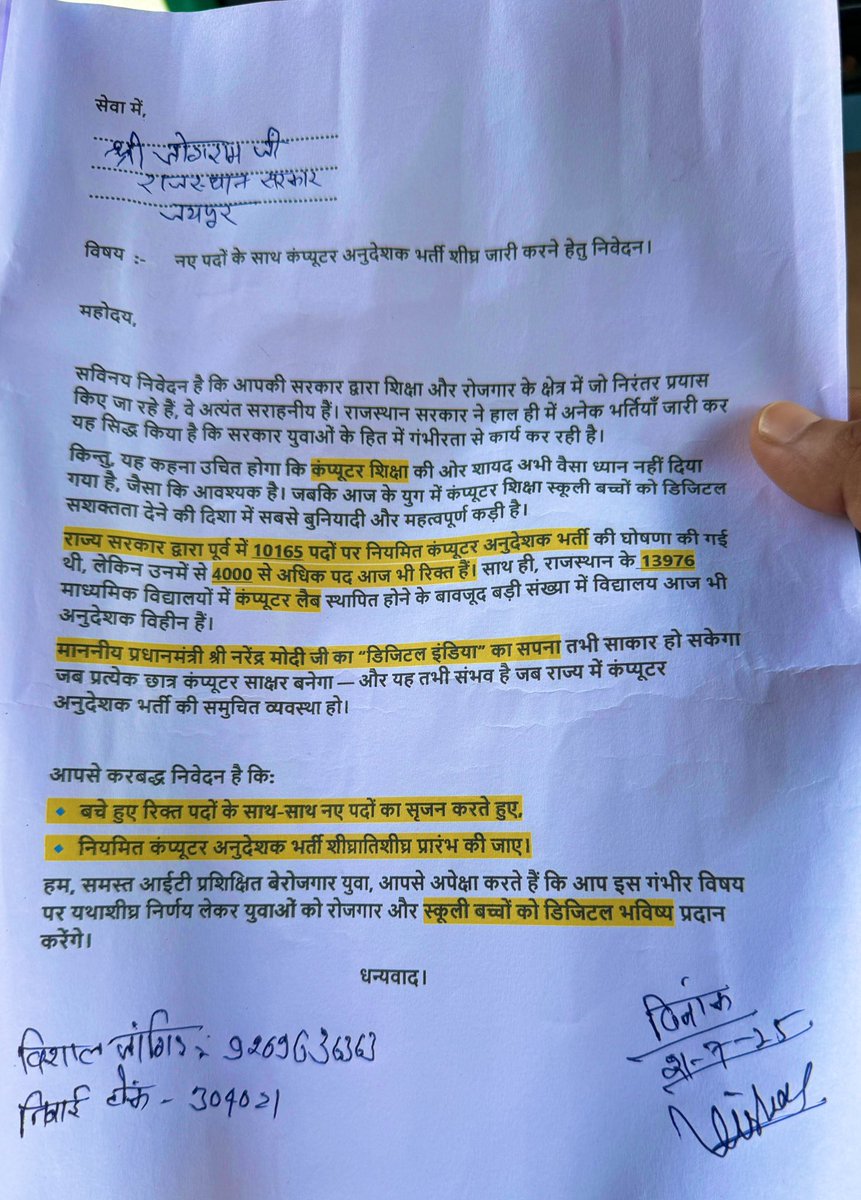 सेवा में,
श्री जोगराम जी
राजस्थान सरकार
जयपुर
विषय :- नए पदों के साथ कंप्यूटर अनुदेशक भर्ती शीघ्र जारी करने हेतु निवेदन।
महोदय,
सविनय निवेदन है कि आपकी सरकार द्वारा शिक्षा और रोजगार के क्षेत्र में जो निरंतर प्रयास
किए जा रहे हैं, वे अत्यंत सराहनीय हैं। राजस्थान सरकार ने हाल ही में अनेक भर्तियाँ जारी कर
यह सिद्ध किया है कि सरकार युवाओं के हित में गंभीरता से कार्य कर रही है।
किन्तु, यह कहना उचित होगा कि कंप्यूटर शिक्षा की ओर शायद अभी वैसा ध्यान नहीं दिया
गया है, जैसा कि आवश्यक है। जबकि आज के युग में कंप्यूटर शिक्षा स्कूली बच्चों को डिजिटल
सशक्तता देने की दिशा में सबसे बुनियादी और महत्वपूर्ण कड़ी है।
राज्य सरकार द्वारा पूर्व में 10165 पदों पर नियमित कंप्यूटर अनुदेशक भर्ती की घोषणा की गई
थी, लेकिन उनमें से 4000 से अधिक पद आज भी रिक्त हैं। साथ ही, राजस्थान के 13976
माध्यमिक विद्यालयों में कंप्यूटर लैब स्थापित होने के बावजूद बड़ी संख्या में विद्यालय आज भी
अनुदेशक विहीन हैं।
माननीय प्रधानमंत्री श्री नरेंद्र मोदी जी का “डिजिटल इंडिया” का सपना तभी साकार हो सकेगा
जब प्रत्येक छात्र कंप्यूटर साक्षर बनेगा — और यह तभी संभव है जब राज्य में कंप्यूटर
अनुदेशक भर्ती की समुचित व्यवस्था हो।
आपसे करबद्ध निवेदन है कि:
🔹 बचे हुए रिक्त पदों के साथ-साथ नए पदों का सृजन करते हुए,
🔹 नियमित कंप्यूटर अनुदेशक भर्ती शीघ्रातिशीघ्र प्रारंभ की जाए।
हम, समस्त आईटी प्रशिक्षित बेरोजगार युवा, आपसे अपेक्षा करते हैं कि आप इस गंभीर विषय
पर यथाशीघ्र निर्णय लेकर युवाओं को रोजगार और स्कूली बच्चों को डिजिटल भविष्य प्रदान
करेंगे।
धन्यवाद।
विशाल जांगिड़ : 9269636363
निवाई टोंक - 304021
दिनांक
21-7-25